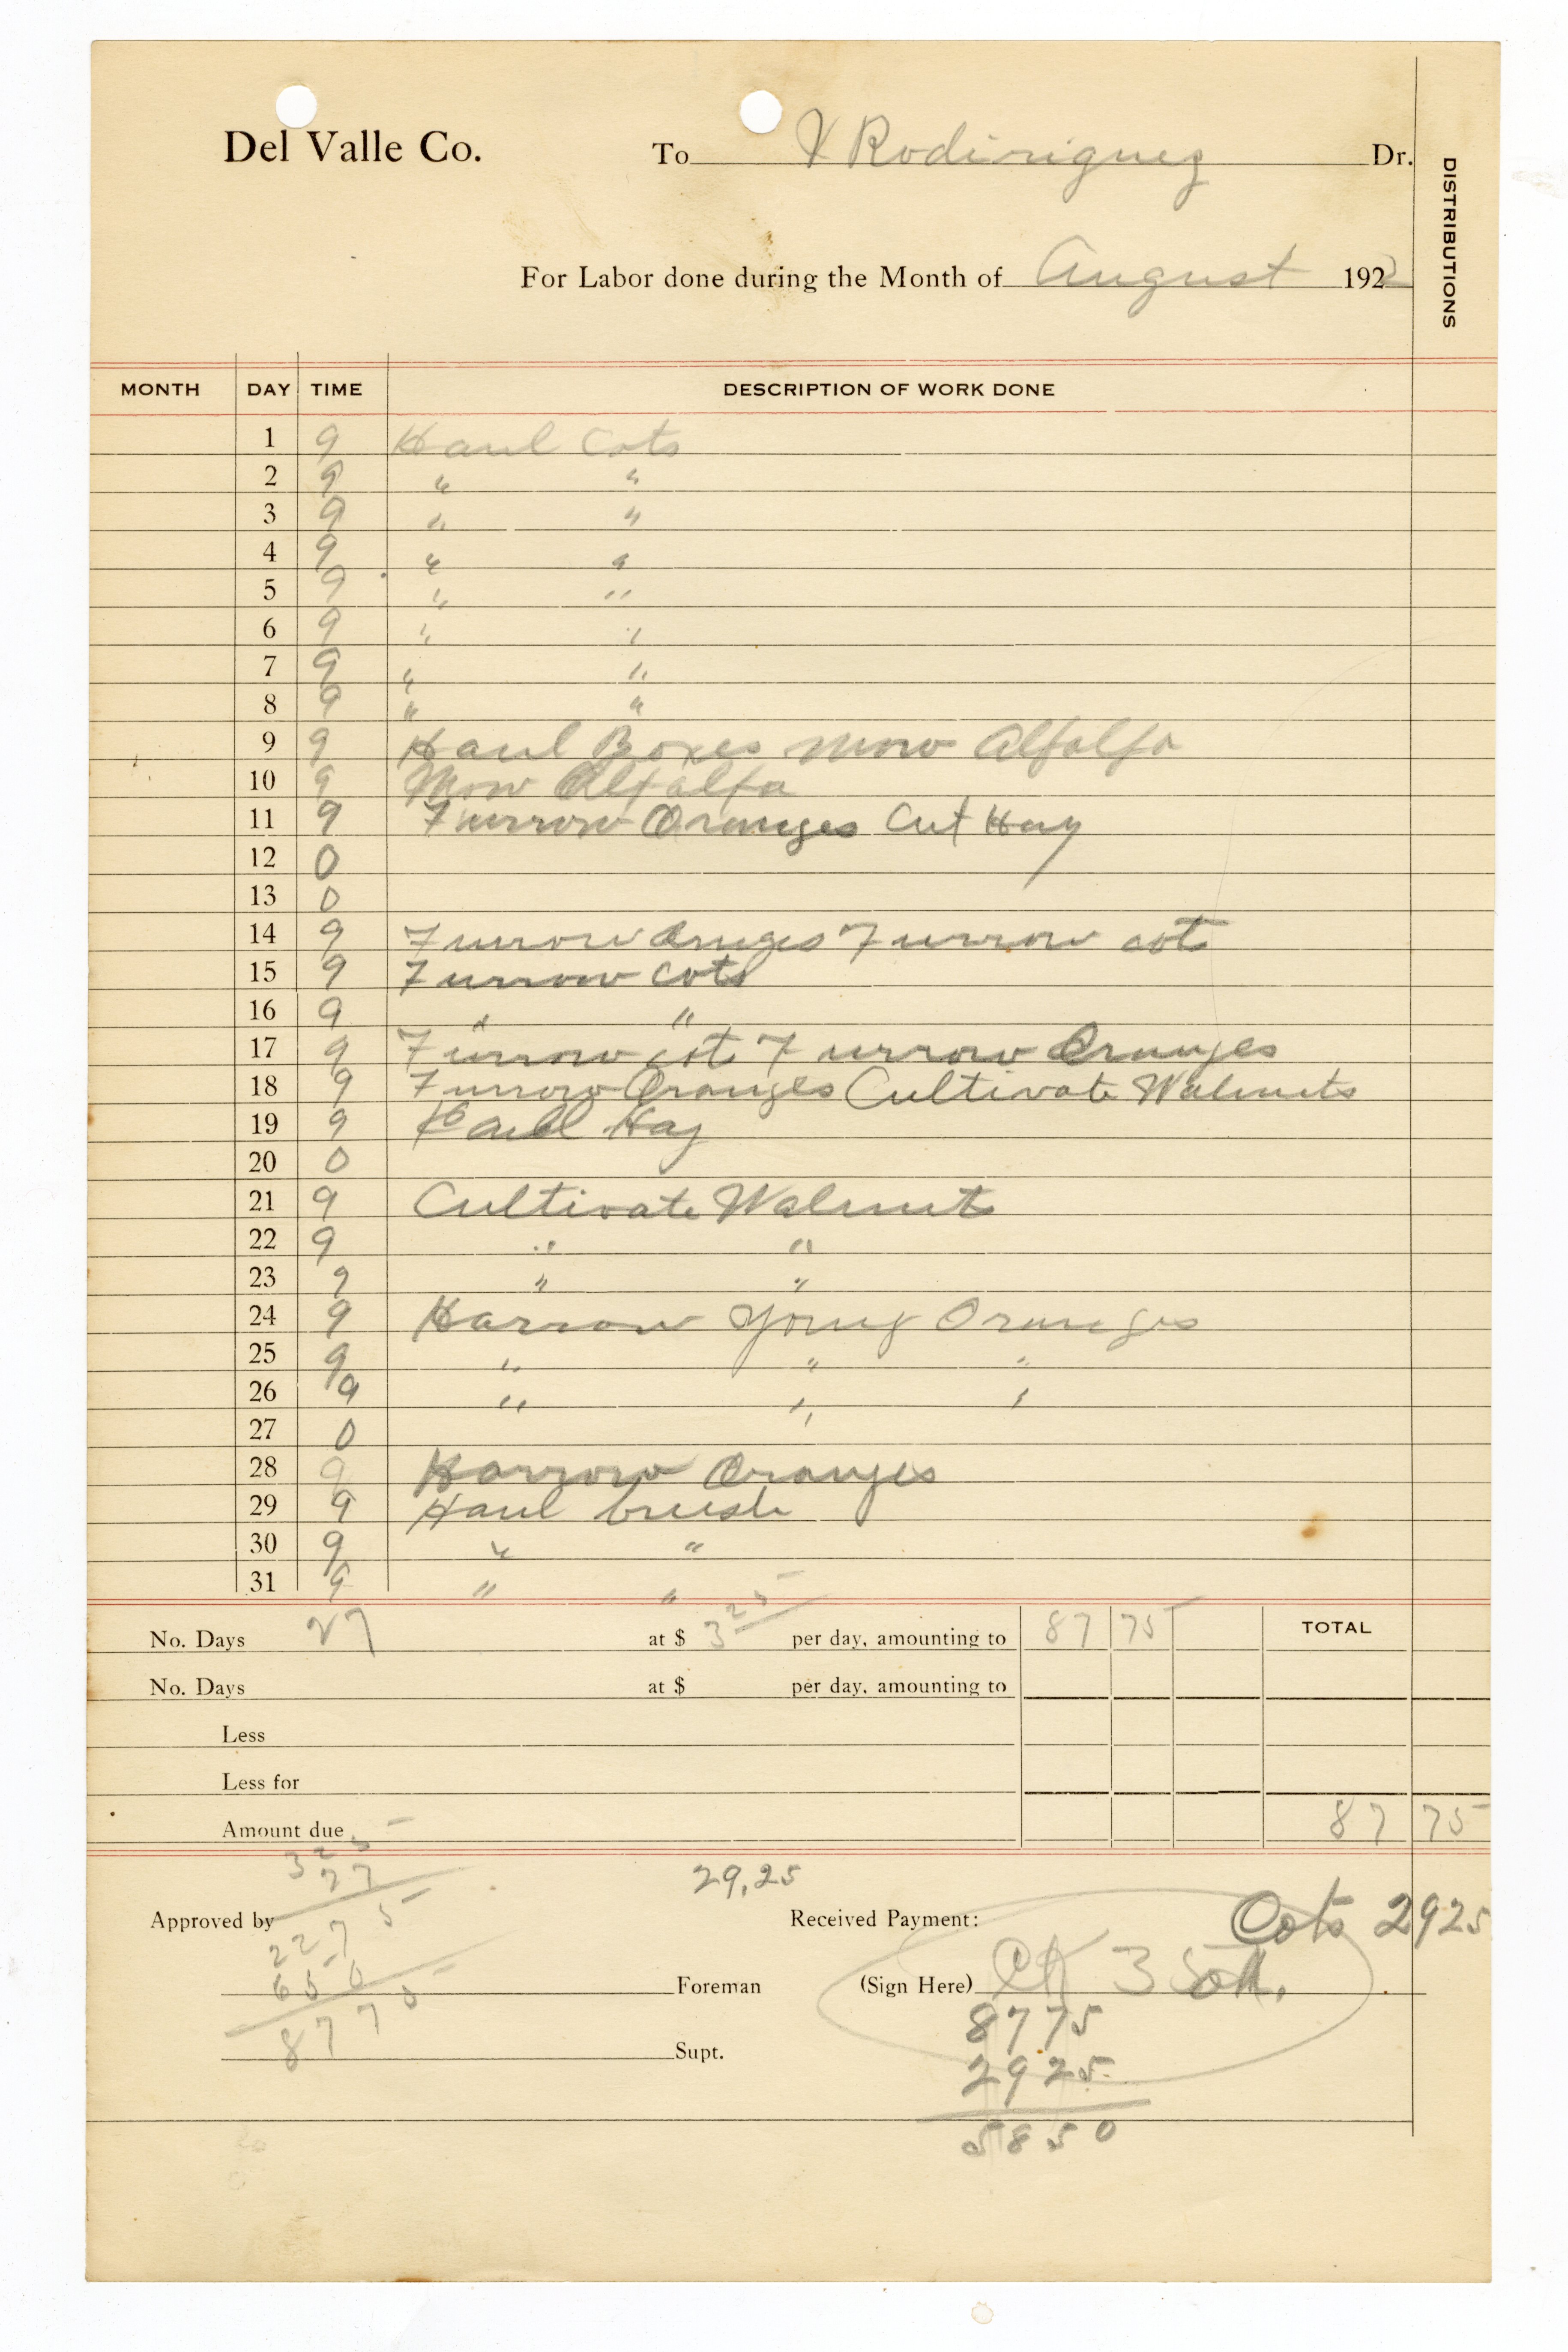 Del Valle Co. To Rodiriguez Dr.
DISTRIBUTIONS
For Labor done during the Month of August 1922
MONTH DAY TIME DESCRIPTION OF WORK DONE
1 9 Haul Cots
2 9 " "
3 9 " "
4 9 " "
5 9 " "
6 9 " "
7 9 " "
8 9 " "
9 9 Haul Boxes Mow Alfalfa
10 9 Mow Alfalfa
11 9 Furrow Oranges Cut Hay
12 0
13 0
14 9 Furrow Oranges Furrow cots
15 9 Furrow Cots
16 9 " "
17 9 Furrow cots Furrow Oranges
18 9 Furrow Oranges Cultivate Walnuts
19 9 Haul Hay
20 0
21 9 Cultivate Walnuts
22 9 " "
23 9 " "
24 9 Harrow Young Oranges
25 9 " " "
26 9 " " "
27 0
28 9 Harrow Oranges
29 9 Haul brush
30 9 " "
31 9 " "
No. Days 27 at $ 3 25 per day, amounting to 87 75 TOTAL
No. Days at $ per day, amounting to
Less
Less for
Amount due 87 75
325
27
2275
650
8775
29,25
Approved by Received Payment: Cots 2925
Foreman (Sign Here) CK
8775
Supt. 2925
5850